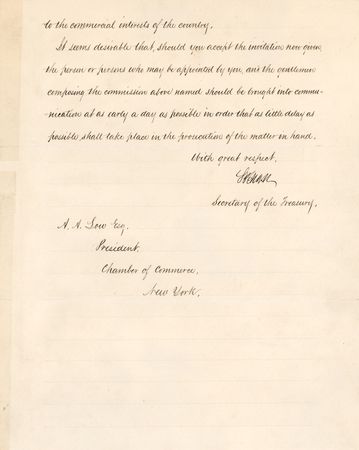 to the commercial interests of the country.
It seems desirable that, should you accept the invitation now given
the person or persons who may be appointed by you, and the gentlemen
composing the commission above named should be brought into commu-
nication at as early a day as possible in order that as little delay as
possible shall take place in the prosecution of the matter in hand.
With great respect,
Secretary of the Treasury.
A. A. Low Esq.
President,
Chamber of Commerce,
New York.